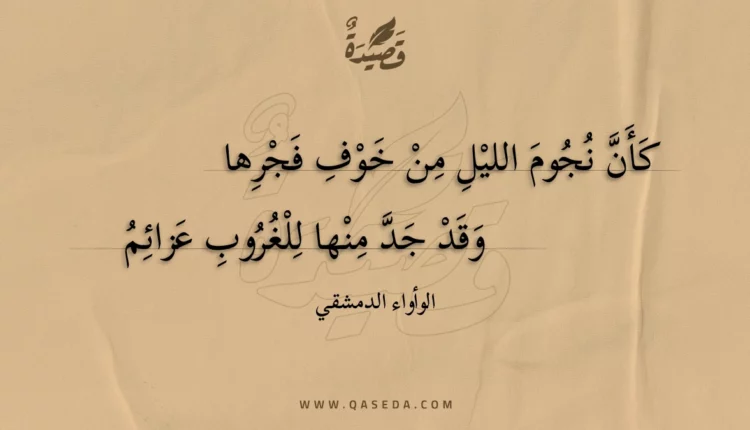 قَصِيْدَةٌ
كَأَنَّ نُجُومَ الليْلِ مِنْ خَوْفِ فَجْرِها
وَقَدْ جَدَّ مِنْها لِلْغُرُوبِ عَزائِمُ
الوأواء الدمشقي
WWW.QASEDA.COM